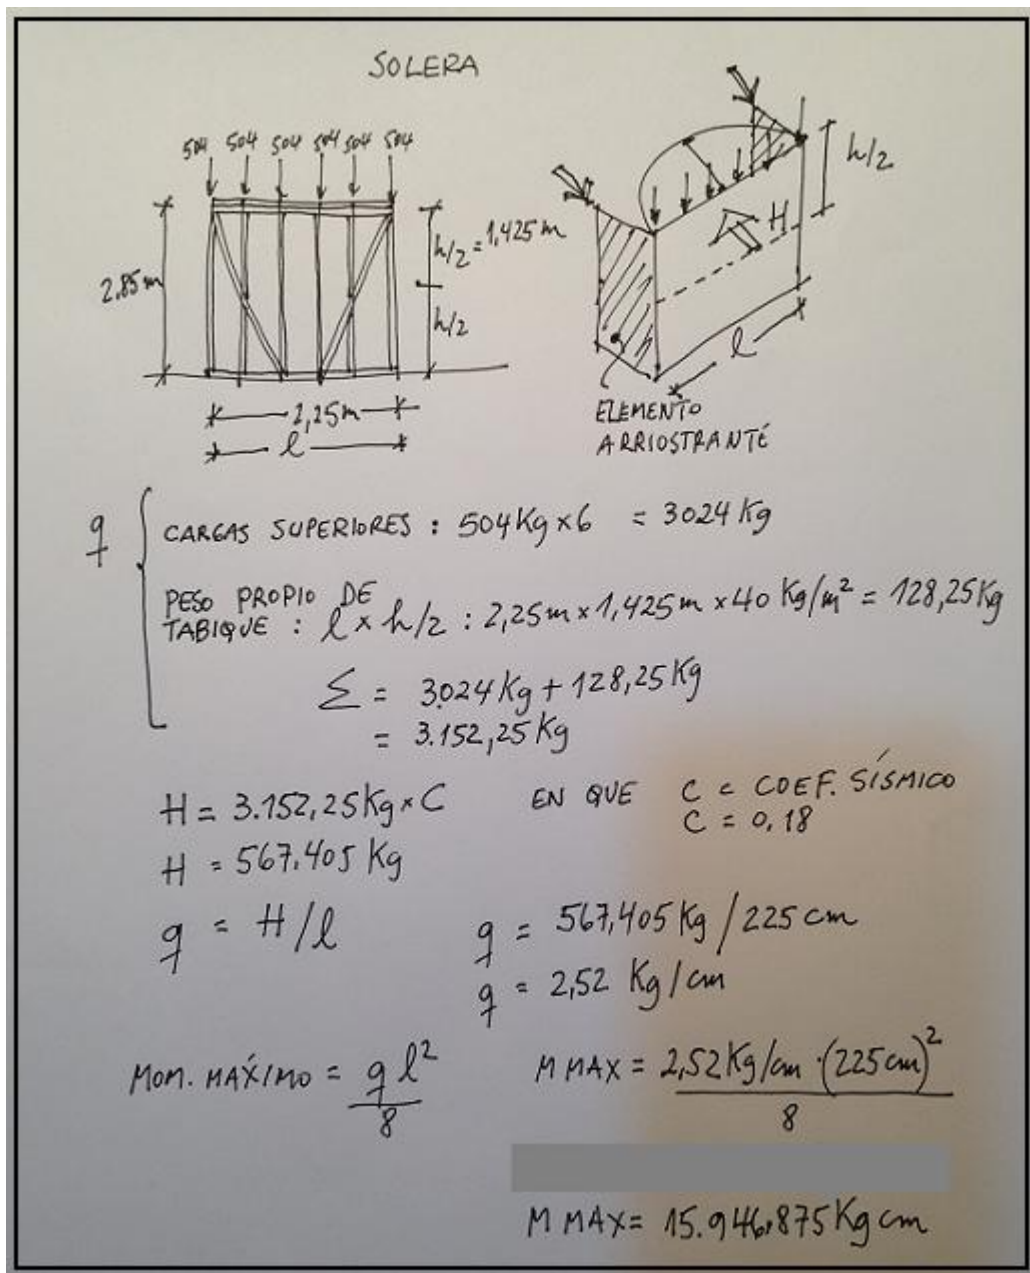 SOLERA
504 504 504 504 504 504
2,85m
h/2 = 1,425m
h/2
2,25m
l
h/2
H
l
ELEMENTO
ARRIOSTRANTÉ
q
CARGAS SUPERIORES : 504Kg x 6 = 3024 Kg
PESO PROPIO DE
TABIQUE : l x h/2 : 2,25m x 1,425m x 40 Kg/m² = 128,25Kg
Σ = 3.024 Kg + 128,25Kg
= 3.152,25 Kg
H = 3.152,25Kg x C EN QUE C = COEF. SÍSMICO
C = 0,18
H = 567,405 Kg
q = H/l q = 567,405 Kg / 225 cm
q = 2,52 Kg/cm
MOM. MÁXIMO = q l² / 8 M MAX = 2,52Kg/cm · (225cm)² / 8
M MAX = 15.946,875 Kg cm